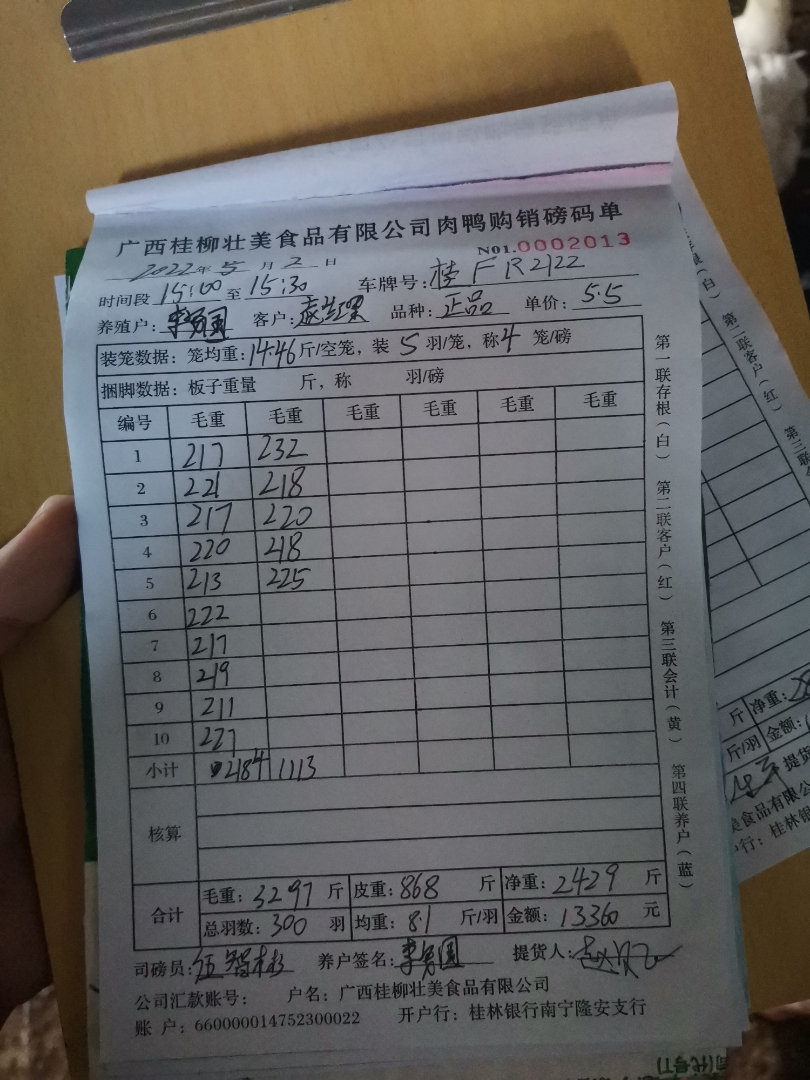 广西桂柳壮美食品有限公司肉鸭购销磅码单
N01.0002013
2022年5月2日
时间段 15:00 至 15:30 车牌号: 桂FR2122
养殖户: 李勇国 客户: 品种: 正品 单价: 5.5
装笼数据: 笼均重: 14.46 斤/空笼, 装 5 羽/笼, 称 4 笼/磅
捆脚数据: 板子重量 斤, 称 羽/磅
编号 毛重 毛重 毛重 毛重 毛重 毛重
1 217 232
2 221 218
3 217 220
4 220 218
5 213 225
6 222
7 217
8 219
9 211
10 227
小计 2184 1113
核算
合计 毛重: 3297 斤 皮重: 868 斤 净重: 2429 斤
总羽数: 300 羽 均重: 8.1 斤/羽 金额: 13360 元
司磅员: 伍智彬 养户签名: 李勇国 提货人:
公司汇款账号: 户名: 广西桂柳壮美食品有限公司
账 户: 660000014752300022 开户行: 桂林银行南宁隆安支行
第一联存根(白) 第二联客户(红) 第三联会计(黄) 第四联养户(蓝)
存根(白) 第二联客户(红) 第三联
斤 净重: 2
斤/羽 金额:
提货
美食品有限公
行: 桂林银